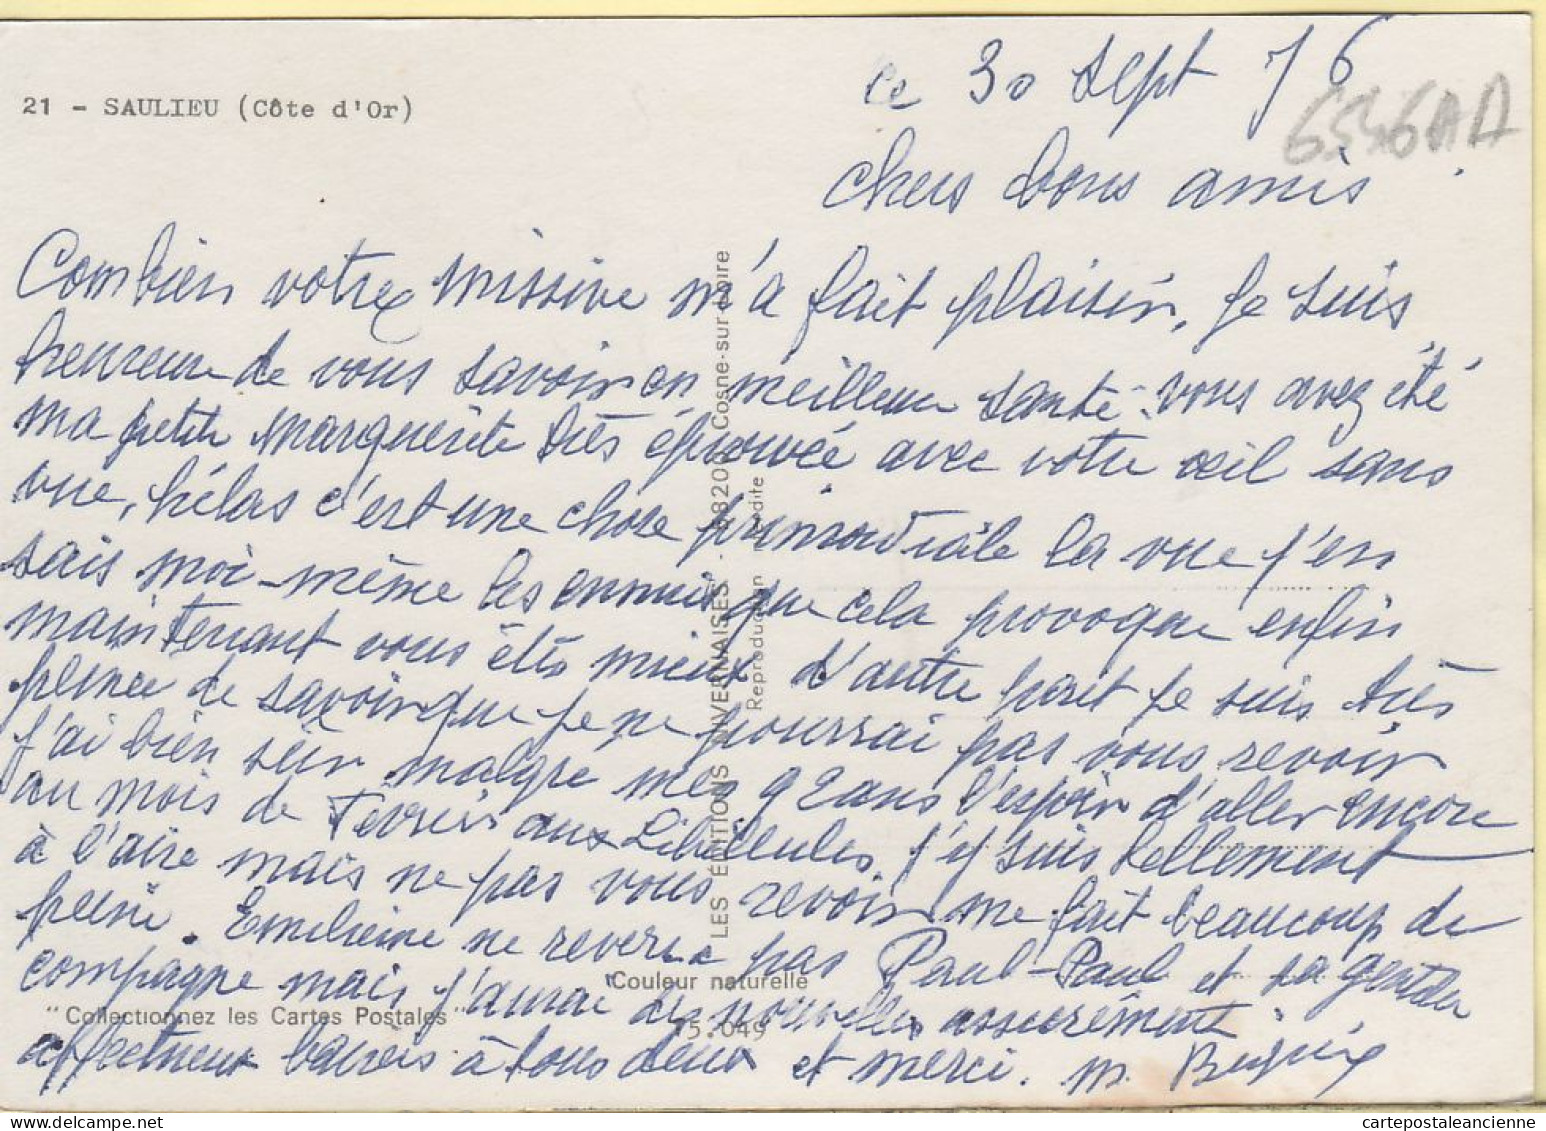 21 - SAULIEU (Côte d'Or)
ce 30 sept 76
6546AA
Chers bons amis
Combien votre missive m'a fait plaisir, je suis
heureuse de vous savoir en meilleure santé. vous avez été
ma petite Marguerite très éprouvée avec votre œil sans
vue, hélas c'est une chose primordiale la vue j'en
sais moi-même les ennuis que cela provoque enfin
maintenant vous êtes mieux d'autre part je suis très
peinée de savoir que je ne pourrai pas vous revoir
j'ai bien sûr malgre mes 92 ans l'espoir d'aller encore
au mois de Février aux Libellules, j'y suis tellement
à l'aise mais ne pas vous revoir me fait beaucoup de
peine. Emilienne ne reverra pas Paul-Paul et sa gentille
compagne mais j'aurai des nouvelles assurément.
affectueux baisers à tous deux et merci. M.
LES ÉDITIONS NIVERNAISES - 58200 Cosne-sur-Loire
Reproduction interdite
Couleur naturelle
"Collectionnez les Cartes Postales"
5.049
cartepostaleancienne